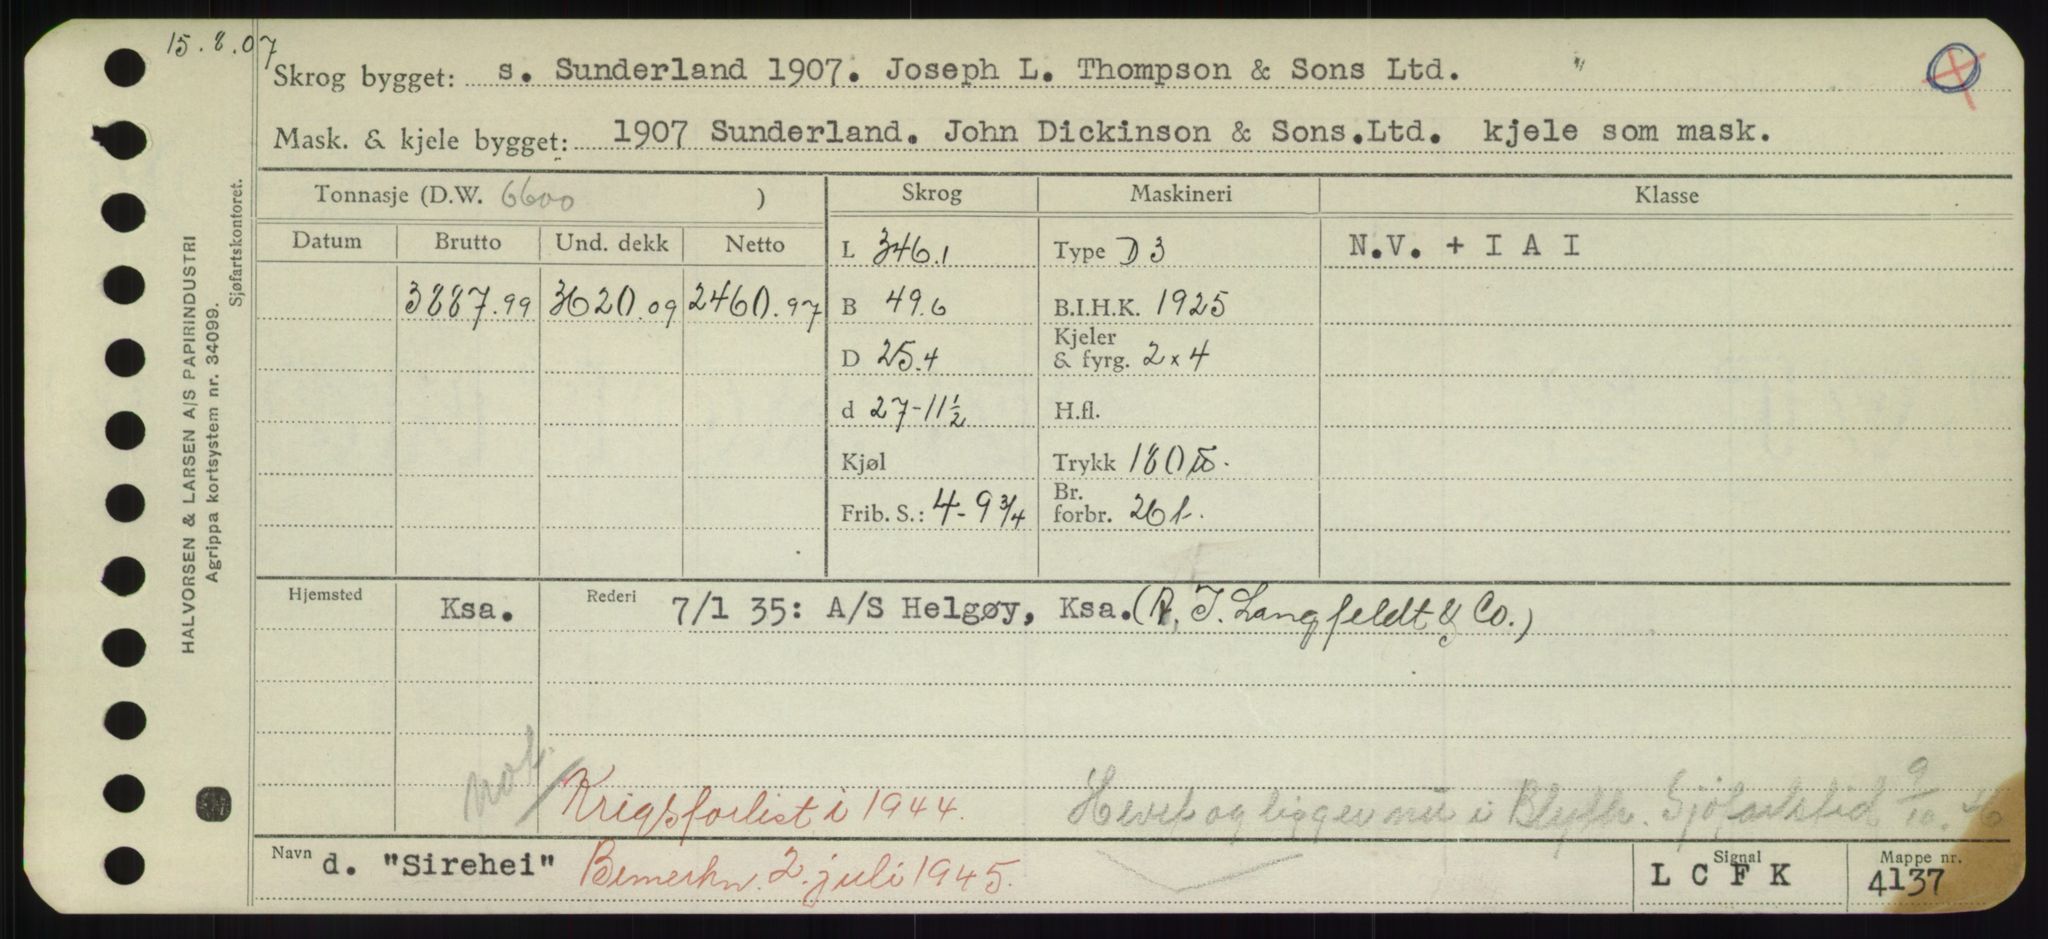 15.8.07
Skrog bygget: s. Sunderland 1907. Joseph L. Thompson & Sons Ltd.
Mask. & kjele bygget: 1907 Sunderland. John Dickinson & Sons.Ltd. kjele som mask.
Tonnasje (D.W. 6600 ) Skrog Maskineri Klasse
Datum Brutto Und. dekk Netto L 346.1 Type D 3 N.V. + I A I
3887.99 3620.09 2460.97 B 49.6 B.I.H.K. 1925
D 25.4 Kjeler & fyrg. 2 x 4
d 27-11½ H.fl.
Kjøl Trykk 180 ℔.
Frib. S.: 4-9¾ Br. forbr. 26 t.
Hjemsted Ksa. Rederi 7/1 35: A/S Helgøy, Ksa. (A. I. Langfeldt & Co.)
not. Krigsforlist i 1944. Hevet og ligger nu i Blyth. Sjøfartstid 9/10.46
Navn d. "Sirehei" Bemerkn. 2. juli 1945. Signal L C F K Mappe nr. 4137
HALVORSEN & LARSEN A/S PAPIRINDUSTRI
Agrippa kortsystem nr. 34099.
Sjøfartskontoret.